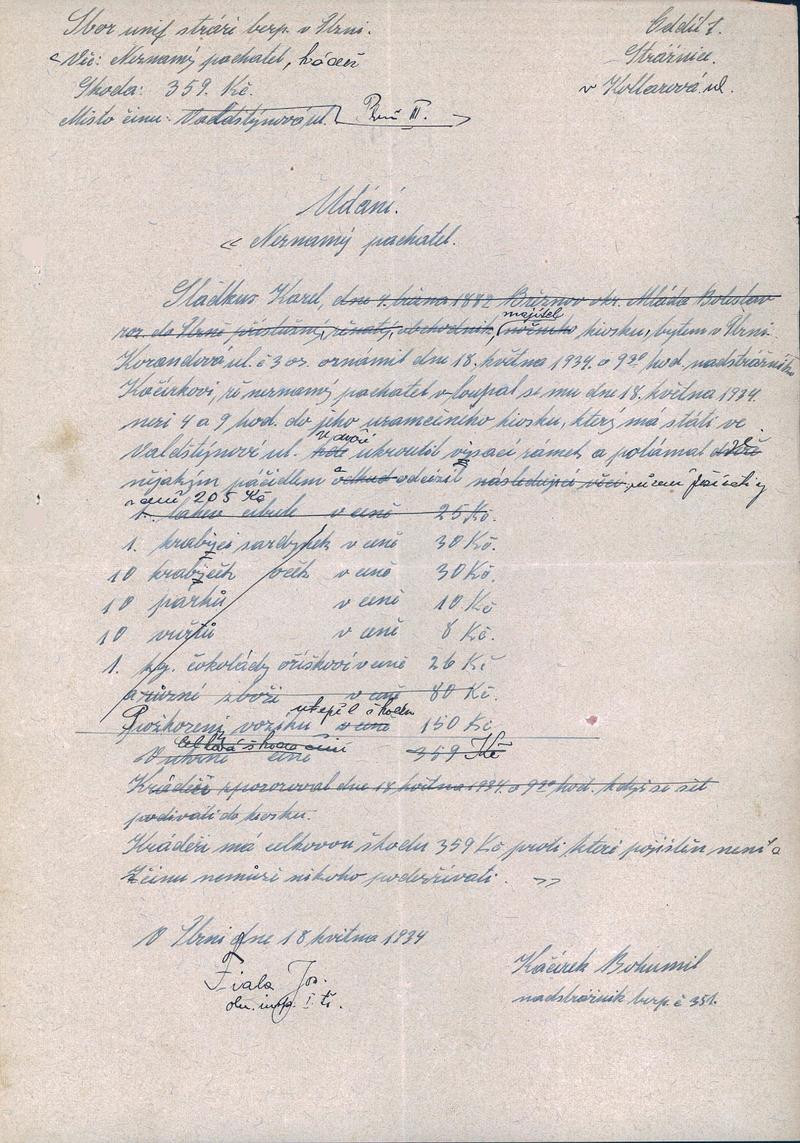 Sbor unif. stráže bezp. v Brně. Oddíl 1.
Věc: Neznamý pachatel, krádež Strážnice.
Škoda: 359. Kč. v Kollarová ul.
Místo činu: Valdštýnová ul. Brno III.
Udání.
Neznamý pachatel.
Sládkus Karel, dne 4. března 1882 Březnov okr. Mladá Boleslav
majitel
roz. do Brna příslušný, ženatý, obchodník, kiosku, bytem v Brně
Korandová ul. č 3 oznámil dne 18. května 1934 o 9³⁰ hod. nadstrážníku
Káčírkovi, že neznamý pachatel vloupal se mu dne 18. května 1934
mezi 4 a 9 hod. do jeho uzamčeného kiosku, který má státi ve
ve dvoře
Valdštýnově ul. ukroutil vysací zámek a polámal dveře
nějakým páčidlem a odkud odcizil následující věci,
v ceně 205 Kč
1. lahev cibule v ceně 25 Kč.
1. krabyci sardynek v ceně 30 Kč.
10 krabyček v ceně 30 Kč.
10 párků v ceně 10 Kč
10 vuřtů v ceně 8 Kč.
1. kg. čokolády oříškové v ceně 26 Kč
a různé zboží v ceně 80 Kč.
utrpěl škodu
Poškozený vozíku v ceně 150 Kč
Celková škoda činí
V úhrné ceně 359 Kč
Krádeže zpozoroval dne 18 května 1934 o 9³⁰ hod. když se šel
podívati do kiosku.
Krádeží má celkovou škodu 359 Kč proti které pojištěn není a
z činu nemůže nikoho podezřívati.
V Brně dne 18 května 1934
Fiala Jos. Káčírek Bohumil
obv. insp. I. tř. nadstrážník bezp. č 351.